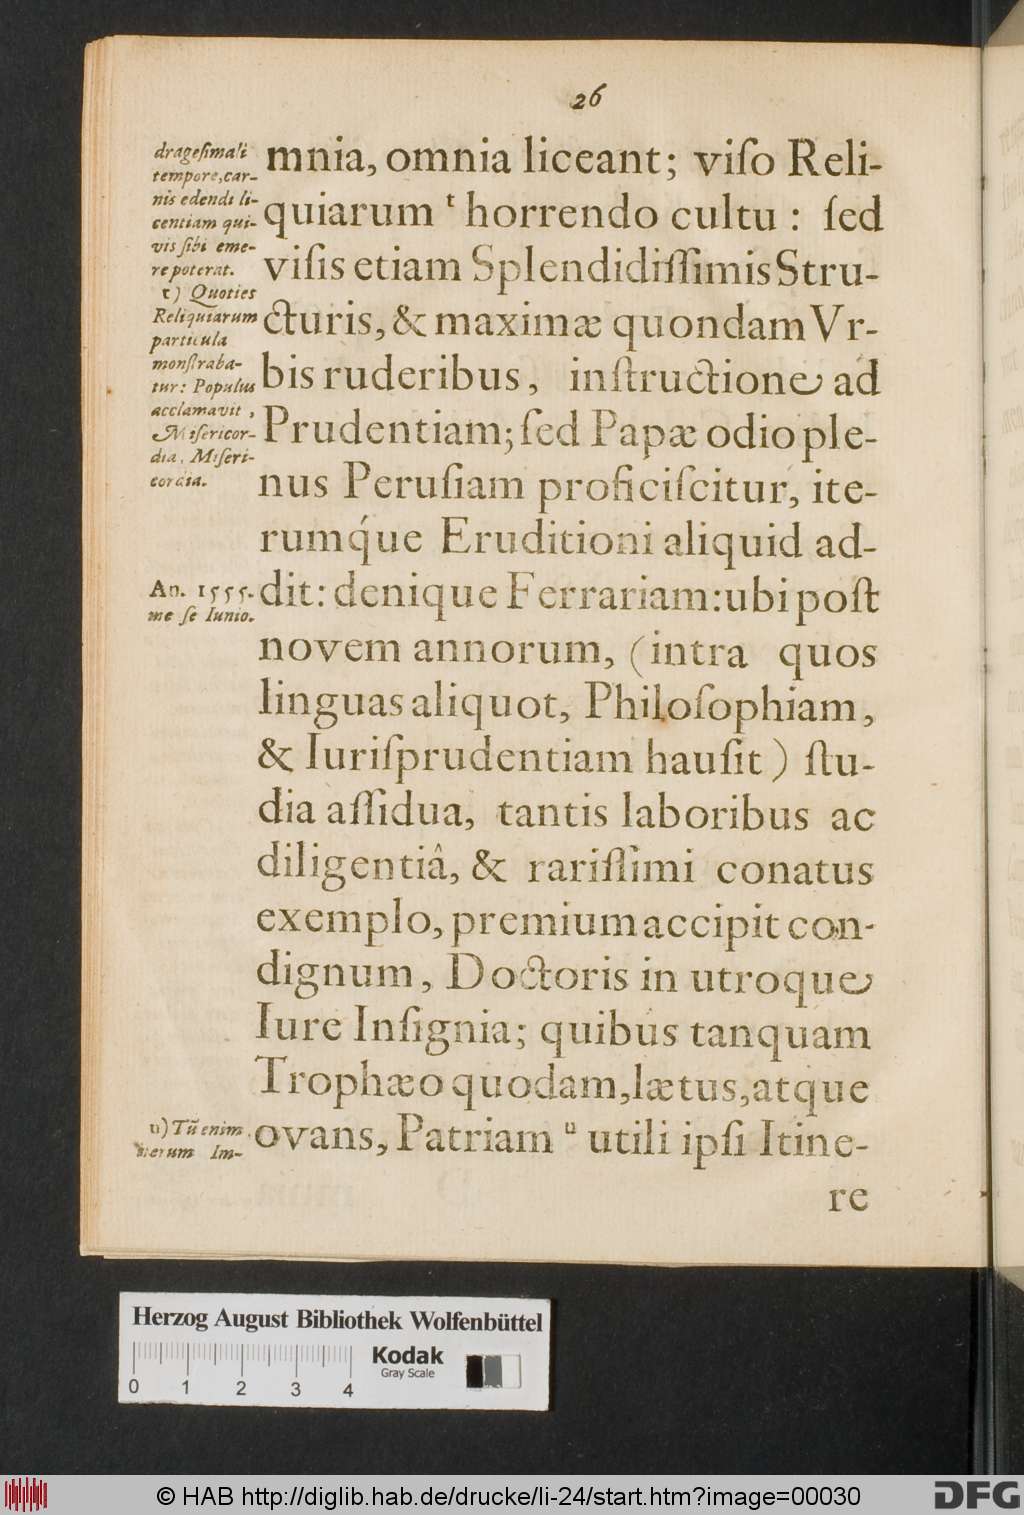 26
drageſimali
tempore, car-
nis edendi li-
centiam qui-
vis ſibi eme-
re poterat.
t) Quoties
Reliquiarum
particula
monſtraba-
tur: Populus
acclamavit,
Miſericor-
dia, Miſeri-
cordia.
An. 1555.
me ſe Iunio.
u) Tũ enim
merum Im-
mnia, omnia liceant; viſo Reli-
quiarum ᵗ horrendo cultu : ſed
viſis etiam Splendidiſſimis Stru-
cturis, & maximæ quondam Vr-
bis ruderibus, inſtructione ad
Prudentiam; ſed Papæ odio ple-
nus Peruſiam proficiſcitur, ite-
rumq́ue Eruditioni aliquid ad-
dit: denique Ferrariam: ubi poſt
novem annorum, (intra quos
linguas aliquot, Philoſophiam,
& Iuriſprudentiam hauſit) ſtu-
dia aſſidua, tantis laboribus ac
diligentiâ, & rariſſimi conatus
exemplo, premium accipit con-
dignum, Doctoris in utroque
Iure Inſignia; quibus tanquam
Trophæo quodam, lætus, atque
ovans, Patriam ᵘ utili ipſi Itine-
re
Herzog August Bibliothek Wolfenbüttel
Kodak
Gray Scale
0 1 2 3 4
© HAB http://diglib.hab.de/drucke/li-24/start.htm?image=00030
DFG